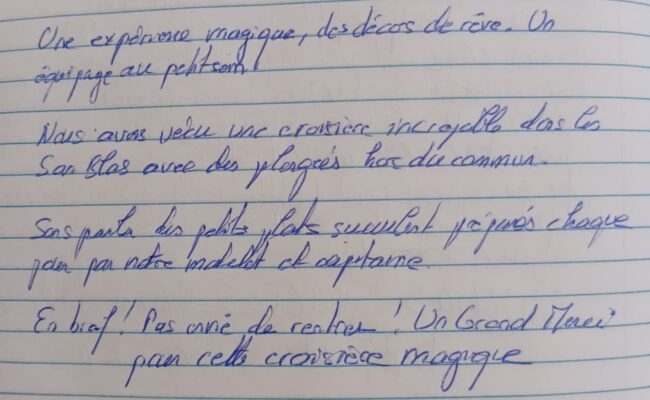 Une expérience magique, des décors de rêve. Un
équipage au petit soin!
Nous avons vécu une croisière incroyable dans les
San Blas avec des plongées hors du commun.
Sans parler des petits plats succulent préparés chaque
jour par notre matelot et capitaine.
En bref! Pas envie de rentrer! Un Grand Merci
pour cette croisière magique